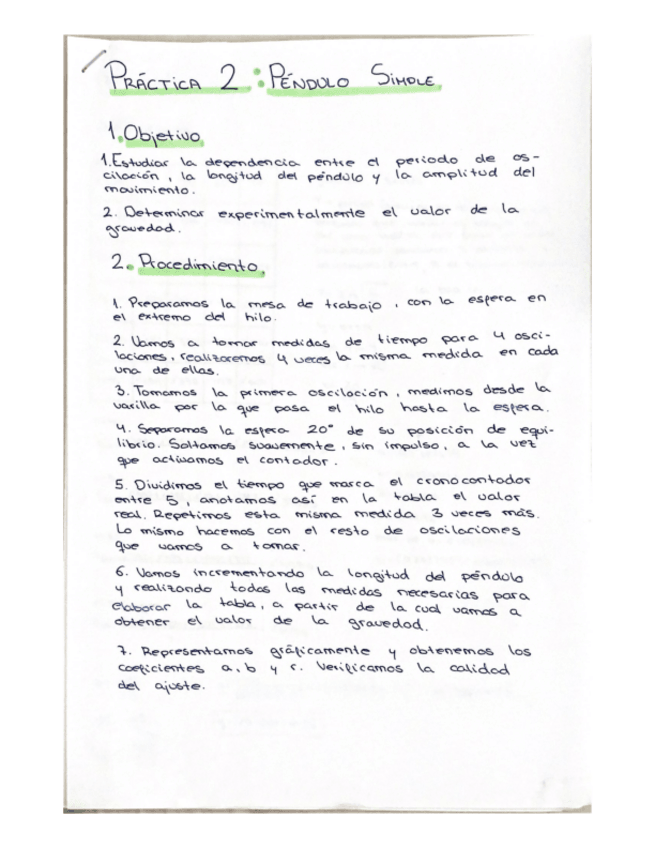 PRÁCTICA 2: PÉNDULO SIMPLE
1. Objetivo
1. Estudiar la dependencia entre el periodo de os-
cilación, la longitud del péndulo y la amplitud del
movimiento.
2. Determinar experimentalmente el valor de la
gravedad.
2. Procedimiento.
1. Preparamos la mesa de trabajo, con la espera en
el extremo del hilo.
2. Vamos a tomar medidas de tiempo para 4 osci-
laciones, realizaremos 4 veces la misma medida en cada
una de ellas.
3. Tomamos la primera oscilación, medimos desde la
varilla por la que pasa el hilo hasta la esfera.
4. Separamos la esfera 20° de su posición de equi-
librio. Soltamos suavemente, sin impulso, a la vez
que activamos el contador.
5. Dividimos el tiempo que marca el cronocontador
entre 5, anotamos así en la tabla el valor
real. Repetimos esta misma medida 3 veces más.
Lo mismo hacemos con el resto de oscilaciones
que vamos a tomar.
6. Vamos incrementando la longitud del péndulo
y realizando todas las medidas necesarias para
elaborar la tabla, a partir de la cual vamos a
obtener el valor de la gravedad.
7. Representamos gráficamente y obtenemos los
coeficientes a, b y r. Verificamos la calidad
del ajuste.